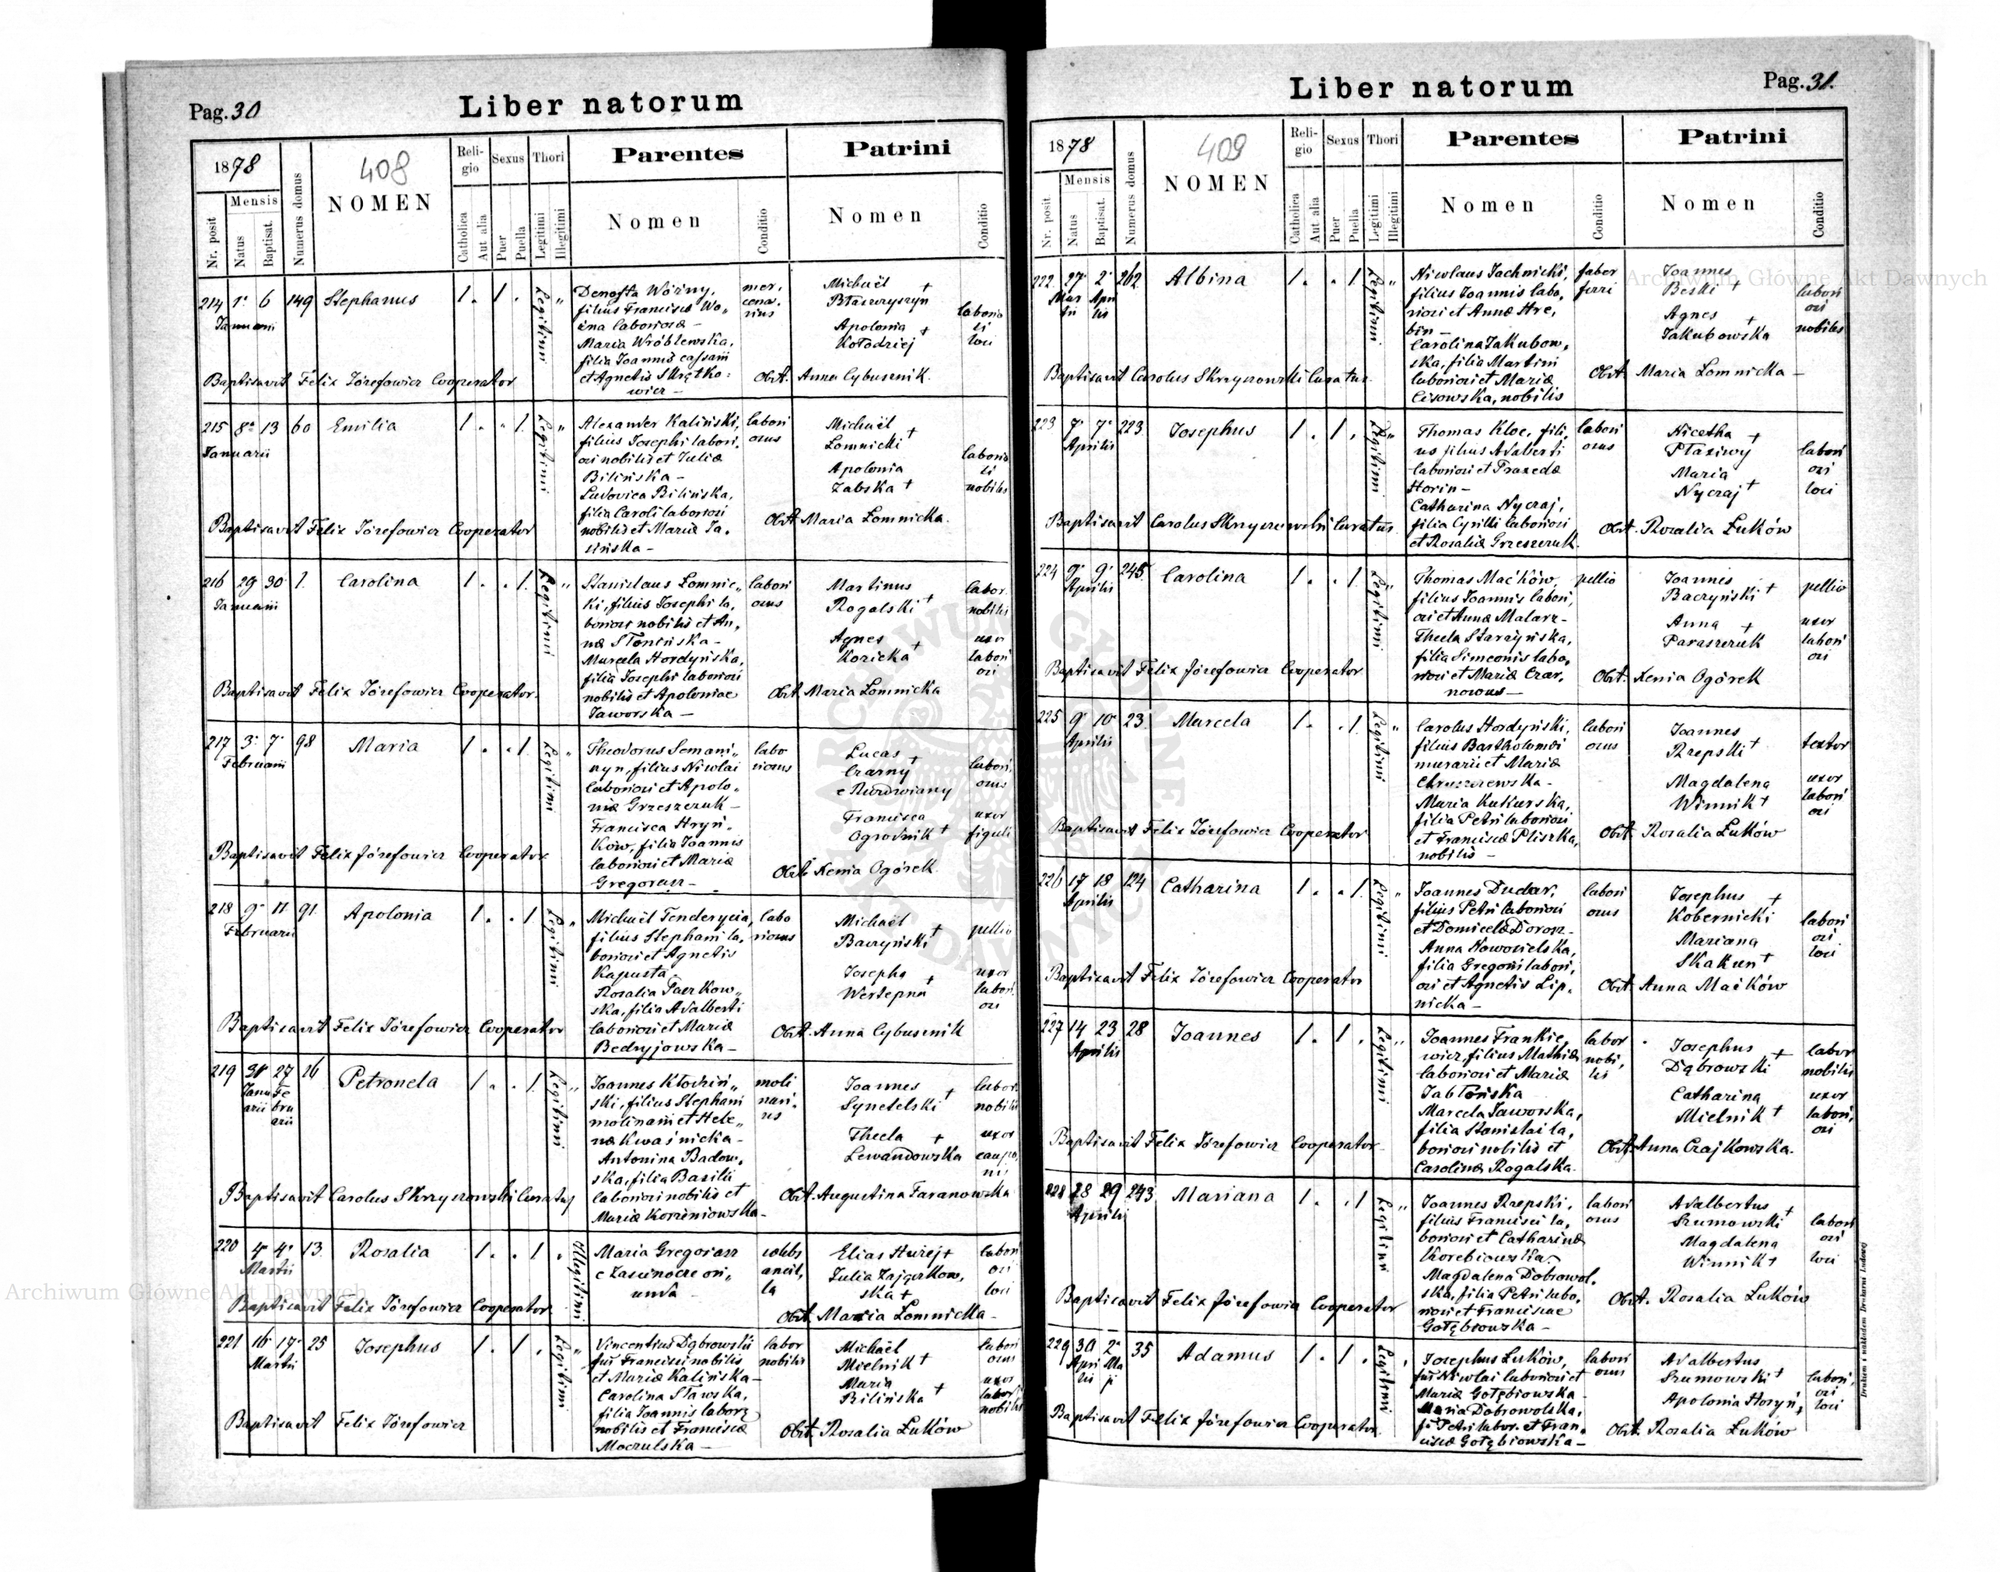 Pag. 30
Liber natorum
1878
Nr. posit
Mensis
Natus
Baptisat.
Numerus domus
408
NOMEN
Religio
Catholica
Aut alia
Sexus
Puer
Puella
Thori
Legitimi
Illegitimi
Parentes
Nomen
Conditio
Patrini
Nomen
Conditio
214 1. 6 149 Stephanus 1 . 1 . Legitimi "
Januarii
Wózny,
filius Francisci Wo„
labor
Maria Wróblewska,
filia Joannis
et Agnetis Skrętko:
wicz —
mer,
cena,
rius
Michaël
Błaszczyszyn +
Apolonia
Kołodziej +
laborio
si
loci
Baptisavit Felix Józefowicz Cooperator
Obst. Anna Cybuscnik.
215 8. 13 60 Emilia 1 . . 1 Legitimi "
Januarii
Alexander Kaliński,
filius Josephi labori„
osi nobilis et Juliæ
Bilińska —
Ludovica Bilińska,
filia Caroli laboriosi
nobilis et Mariæ Ja.
sińska —
labori
osus
Michaël
Łomnicki +
Apolonia
Zabska +
laborio
si
nobiles
Baptisavit Felix Józefowicz Cooperator
Obst. Maria Łomnicka.
216 29 30 1. Carolina 1 . . 1. Legitimi "
Januarii
Stanislaus Łomnic„
ki, filius Josephi la„
boriosi nobilis et An„
næ Słonińska —
Marcela Hordyńska,
filia Josephi laboriosi
nobilis et Apoloniae
Jaworska —
labori
osus
Martinus
Rogalski +
Agnes
Kozicka +
labor.
nobilis
uxor
labori
osi
Baptisavit Felix Józefowicz Cooperator.
Obst. Maria Łomnicka
217 3. 7. 98 Maria 1 . . 1. Legitimi "
Februarii
Theodorus Semani„
szyn, filius Nicolai
laboriosi et Apolo„
niæ Grzeszczuk —
Francisca Hryń„
ków, filia Joannis
laboriosi et Mariæ
Gregorasz —
labo
riosus
Lucas
Czarny +
e Rozdwiany
Francisca
Ogrodnik +
labori,
osus
uxor
figuli
Baptisavit Felix Józefowicz Cooperator
Obst. Xenia Ogórek.
218 9. 11 91. Apolonia 1 . . 1 Legitimi "
Februarii
Michaël Tenderycia,
filius Stephani la„
boriosi et Agnetis
Kapusta.
Rosalia Paczkow„
ska, filia Adalberti
laboriosi et Mariæ
Bedryjowska —
labo
riosus
Michaël
Baczyński +
Josepha
Wersepna +
pellio
uxor
labori
osi
Baptisavit Felix Józefowicz Cooperator
Obst. Anna Cybuscnik
219 31 27 16 Petronela 1 . . 1. Legitimi "
Janu Fe
arii bru
arii
Joannes Kłodziń„
ski, filius Stephani
molinarii et Hele„
næ Kwaśnicka —
Antonina Badow„
ska, filia Basilii
laboriosi nobilis et
Mariæ Korzeniowska —
moli
nari„
us
Joannes
Synetelski +
Thecla +
Lewandowska
labor
nobilis
uxor
caupo,
nis
Baptisavit Carolus Skrzyszowski Curatus
Obst. Augustina Taranowska
220 4. 4. 13. Rosalia 1 . . 1 . Illegitimi
Martii
Maria Gregorasz
e Zascinocze ori„
unda —
cælebs
ancil,
la
Elias Huzej +
Julia Zajączkow„
ska +
labori
osi
loci
Baptisavit Felix Józefowicz Cooperator
Obst. Maria Łomnicka —
221 16 17. 25 Josephus 1 . 1 . Legitimi "
Martii
Vincentius Dąbrowski
fius Francisci nobilis
et Mariæ Kalińska —
Carolina Sławska,
filia Joannis labor
nobilis et Franciscæ
Moczulska —
labor
nobilis
Michaël
Mielnik +
Maria
Bilińska +
labori
osus
uxor
labor
nobilis
Baptisavit Felix Józefowicz
Obst. Rosalia Łuków
Pag. 31.
Liber natorum
1878
Nr. posit
Mensis
Natus
Baptisat.
Numerus domus
409
NOMEN
Religio
Catholica
Aut alia
Sexus
Puer
Puella
Thori
Legitimi
Illegitimi
Parentes
Nomen
Conditio
Patrini
Nomen
Conditio
222 27. 2. 262 Albina 1. . 1. Legitimi "
Mar Apri
tii lis
Nicolaus Jachnicki,
filius Joannis labo„
riosi et Annæ Hre,
bin —
Carolina Jakubow„
ska, filia Martini
laboriosi et Mariæ
Cisowska, nobilis
faber
ferri
Joannes
Beski +
Agnes +
Jakubowska
labori
osi
nobiles
Baptisavit Carolus Skrzyszowski Curatus
Obst. Maria Łomnicka —
223 7. 7. 223 Josephus 1. 1. Legitimi "
Aprilis
Thomas Kloc, fili„
us filius Adalberti
laboriosi et Praxedæ
Horin —
Catharina Nyczaj,
filia Cyrilli laboriosi
et Rosaliæ Grzeszczuk.
labori
osus
Nicetha +
Ptaziwy
Maria
Nyczaj +
labori
osi
loci
Baptisavit Carolus Skrzyszowski Curatus
Obst. Rosalia Łuków
224 9. 9. 245. Carolina 1. . 1. Legitimi "
Aprilis
Thomas Maćków,
filius Joannis labori„
osi et Annæ Malarz —
Thecla Starzyńska,
filia Simeonis labo„
riosi et Mariæ Czar„
nowus —
pellio
Joannes
Baczyński +
Anna +
Paraszczuk
pellio
uxor
labori
osi
Baptisavit Felix Józefowicz Cooperator
Obst. Xenia Ogórek
225 9. 10. 23 Marcela 1. . 1. Legitimi "
Aprilis
Carolus Hordyński,
filius Bartholomæi
murarii et Mariæ
Chruszczewska —
Maria Kukurska,
filia Petri laboriosi
et Franciscæ Pliszka,
nobilis —
labori
osus
Joannes
Rzepski +
Magdalena
Winnik +
textor
uxor
labori
osi
Baptisavit Felix Józefowicz Cooperator
Obst. Rosalia Łuków
226 17 18 124 Catharina 1. . 1. Legitimi "
Aprilis
Joannes Dudar,
filius Petri laboriosi
et Domicelæ Dorosz —
Anna Nowosielska,
filia Gregorii labori„
osi et Agnetis Lip„
nicka —
labori
osus
Josephus +
Kobernicki
Mariana
Skakun +
labori
osi
loci
Baptisavit Felix Józefowicz Cooperator
Obst. Anna Maćków
227 14 23 28 Joannes 1. 1. Legitimi "
Aprilis
Joannes Frankie„
wicz, filius Mathiæ
laboriosi et Mariæ
Jabłońska
Marcela Jaworska,
filia Stanislai la„
boriosi nobilis et
Carolinæ Rogalska.
labor
nobi„
lis
Josephus +
Dąbrowski
Catharina
Mielnik +
labor
nobilis
uxor
labori,
osi
Baptisavit Felix Józefowicz Cooperator
Obst. Anna Czajkowska.
228 28 29 243. Mariana 1. . 1 Legitimi "
Aprilis
Joannes Rzepski,
filius Francisci la„
boriosi et Catharinæ
Korebiowska
Magdalena Dobrowol„
ska, filia Petri labo„
riosi et Franciscae
Gołębiowska —
labori
osus
Adalbertus
Szumowski +
Magdalena
Winnik +
labori
osi
loci
Baptisavit Felix Józefowicz Cooperator
Obst. Rosalia Łuków
229 30 2. 35 Adamus 1. 1. Legitimi
Apri Ma
lis ji
Josephus Łuków,
fius Nicolai laboriosi et
Mariæ Gołębiowska —
Maria Dobrowolska,
fi Petri labor. et Fran„
ciscæ Gołębiowska —
labori
osus
Adalbertus
Szumowski +
Apolonia Horyń +
labori,
osi
loci
Baptisavit Felix Józefowicz Cooperator.
Obst. Rosalia Łuków
Drukiem i nakładem Drukarni Ludowej
Archiwum Główne Akt Dawnych
Archiwum Główne Akt Dawnych
ARCHIWUM GŁÓWNE AKT DAWNYCH